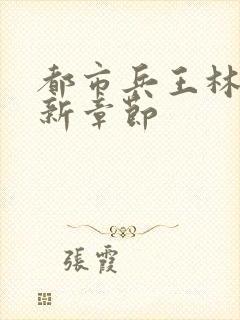 都市兵王林
新章節
張霞